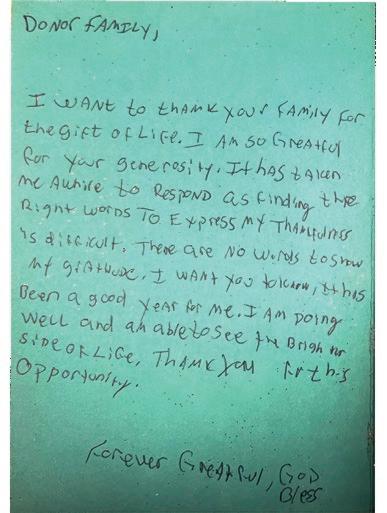 Donor Family,
I want to thank your family for
the gift of Life. I am so Greatful
for your generosity. It has taken
me awhile to Respond as finding the
Right words To Express my Thankfulness
is difficult. There are no words to show
my gratitude. I want you to know, it has
Been a good year for me. I am Doing
well and am able to see the Brighter
side of Life. Thank you for this
Opportunity.
Forever Greatful, God
Bless